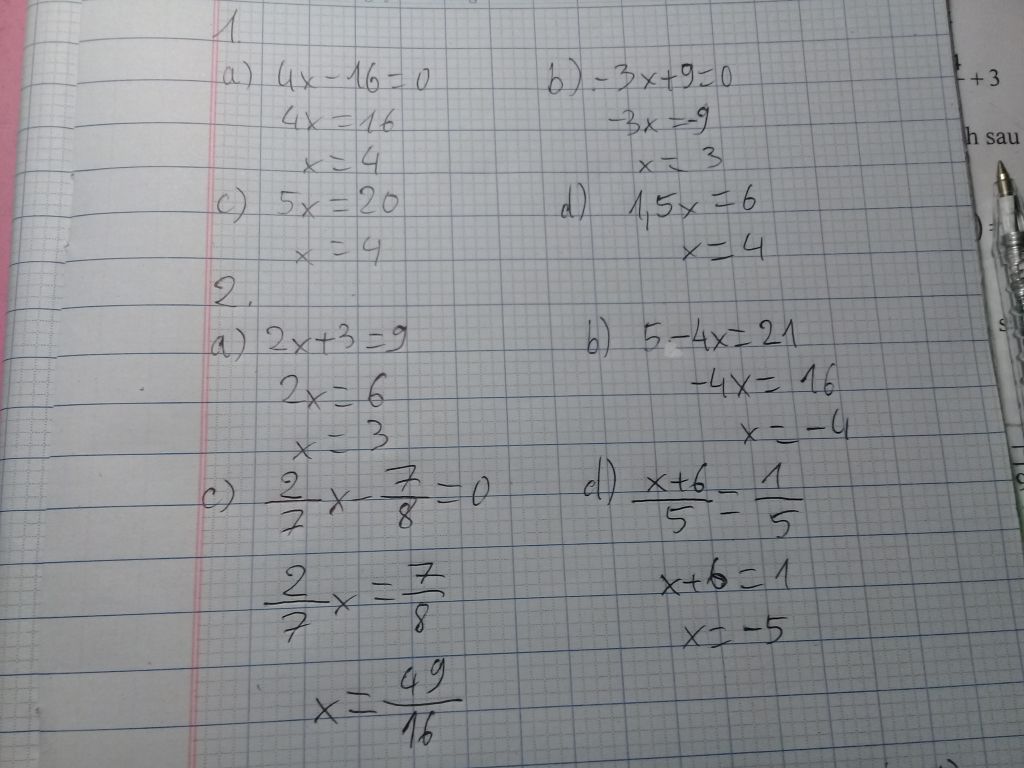 1.
a) 4x-16=0
4x=16
x=4
b) -3x+9=0
-3x=-9
x=3
c) 5x=20
x=4
d) 1,5x=6
x=4
2.
a) 2x+3=9
2x=6
x=3
b) 5-4x=21
-4x=16
x=-4
c) 2/7 x - 7/8 = 0
2/7 x = 7/8
x = 49/16
d) x+6/5 = 1/5
x+6=1
x=-5
+ 3
h sau